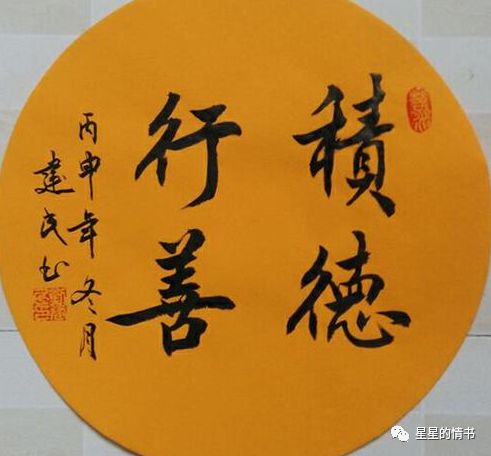 積德
行善
丙申年冬月
建民书
星星的情书